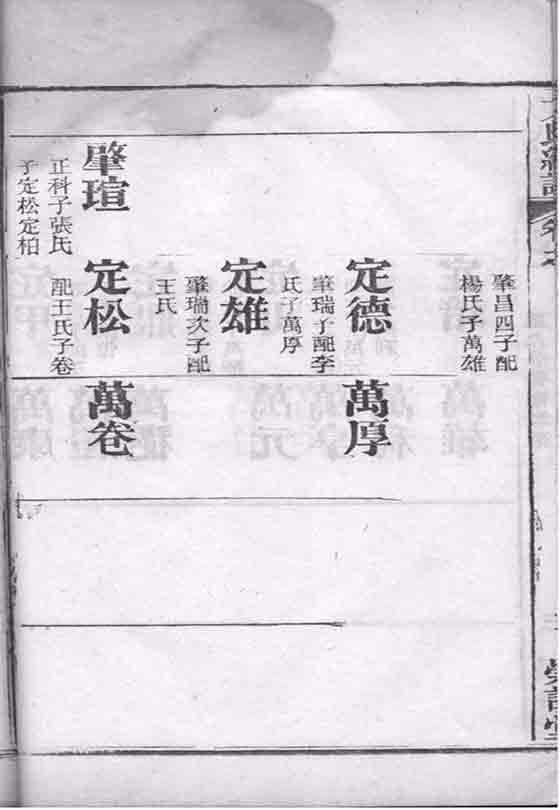 肇昌四子配
楊氏子萬雄
定德
肇瑞子配李
氏子萬厚
定雄
肇瑞次子配
王氏
肇瑄
正科子張氏
子定松定柏
定松
配王氏子卷
萬厚
萬卷